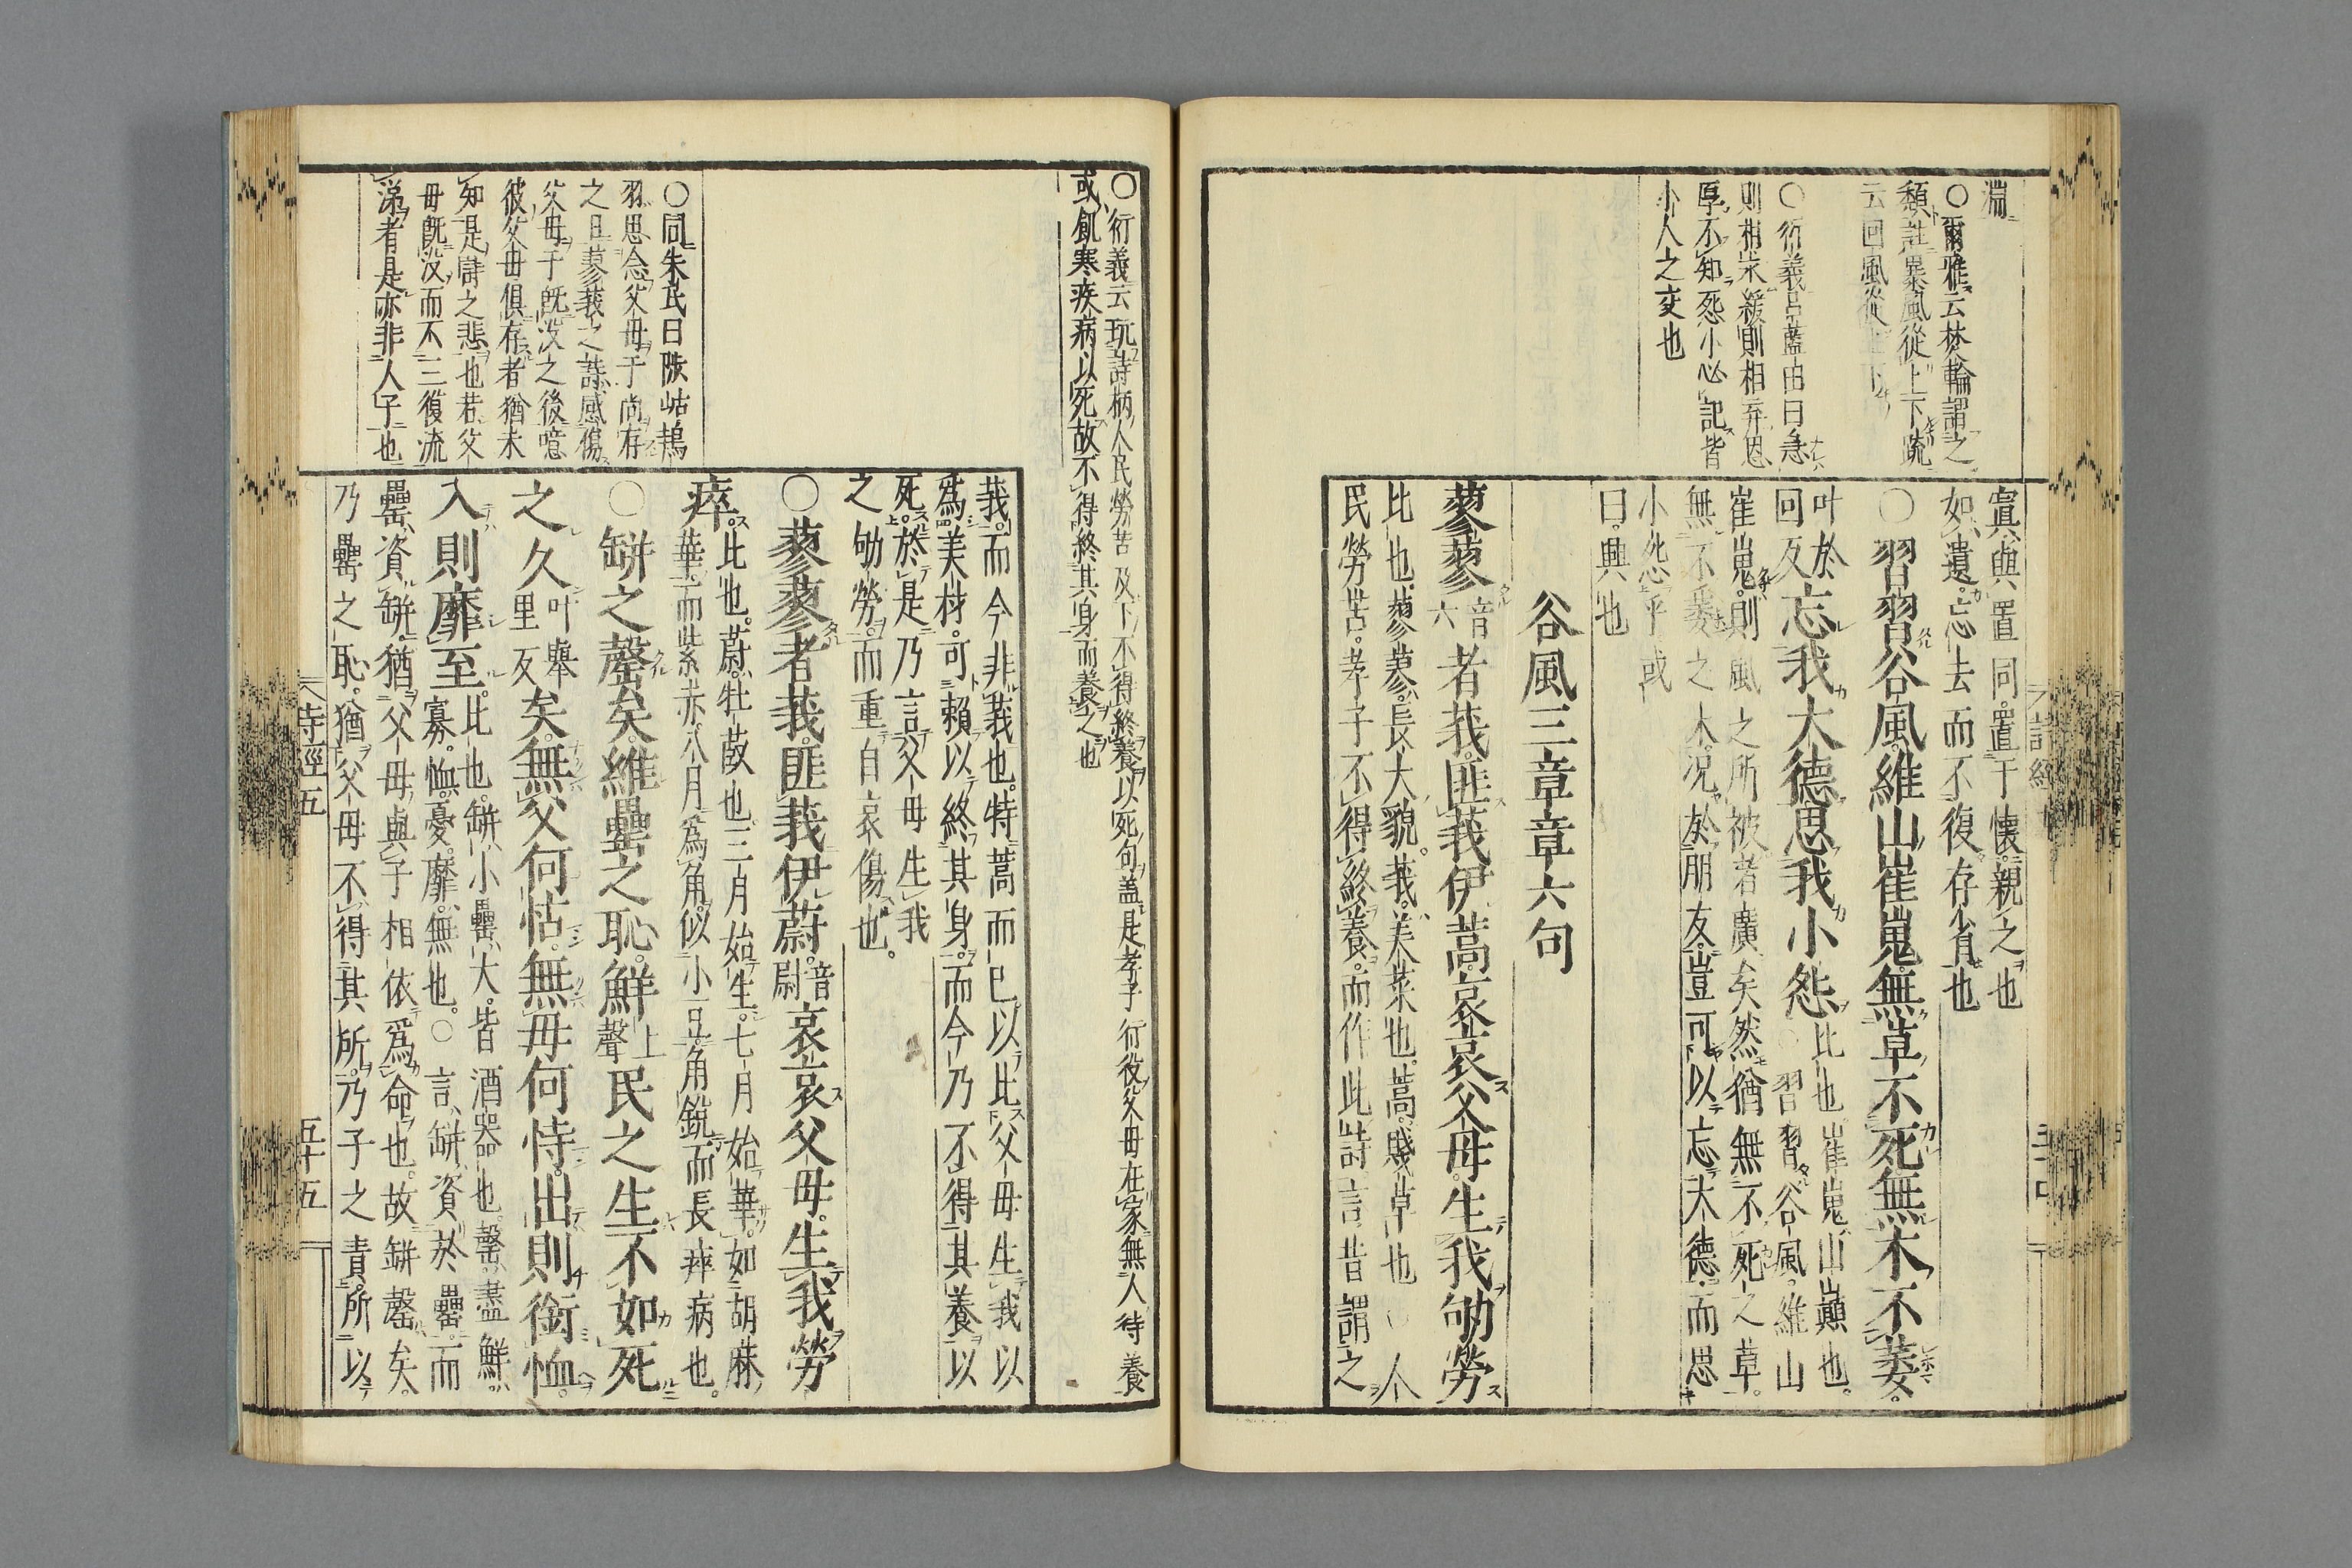 淵
○爾雅云焚輪謂之
頹註暴風從上下疏
云回風從上下
○衍義呂藍田曰急
則相求緩則相弃恩
厚不知怨小必記皆
小人之交也
寘與置同置于懷親之也
如遺忘去而不復存省也
○習習谷風維山崔嵬無草不死無木不萎
叶於
回反
忘我大德思我小怨
比也崔嵬山巔也
○習習谷風維山
崔嵬則風之所被者廣矣然猶無不死之草
無不萎之木况於朋友豈可以忘大德而思
小怨乎或
曰興也
谷風三章章六句
蓼蓼
音
六
者莪匪莪伊蒿哀哀父母生我劬勞
比也蓼蓼長大貌莪美菜也蒿賤草也○人
民勞苦孝子不得終養而作此詩言昔謂之
○衍義云玩詩柄人民勞苦及下不得終養以死句蓋是孝子行役父母在家無人待養
或飢寒疾病以死故不得終其身而養之也
莪而今非莪也特蒿而已以比父母生我以
爲美材可賴以終其身而今乃不得其養以
死於是乃言父母生我
之劬勞而重自哀傷也
○蓼蓼者莪匪莪伊蔚
音
尉
哀哀父母生我勞
瘁
比也蔚牡菣也三月始生七月始華如胡麻
華而紫赤八月爲角似小豆角銳而長瘁病也
○缾之罄矣維罍之恥鮮
上
聲
民之生不如死
之久
叶舉
里反
矣無父何怙無母何恃出則銜恤
入則靡至
比也缾小罍大皆酒器也罄盡鮮
寡恤憂靡無也○言缾資於罍而
罍資缾猶父母與子相依爲命也故缾罄矣
乃罍之恥猶父母不得其所乃子之責所以
○同朱氏曰陟岵鴇
羽思念父母于尚存
之日蓼莪之詩感傷
父母于旣沒之後噫
彼父母俱存者猶未
知是詩之悲也若父
母旣沒而不三復流
涕者是亦非人子也
詩經五
五十五